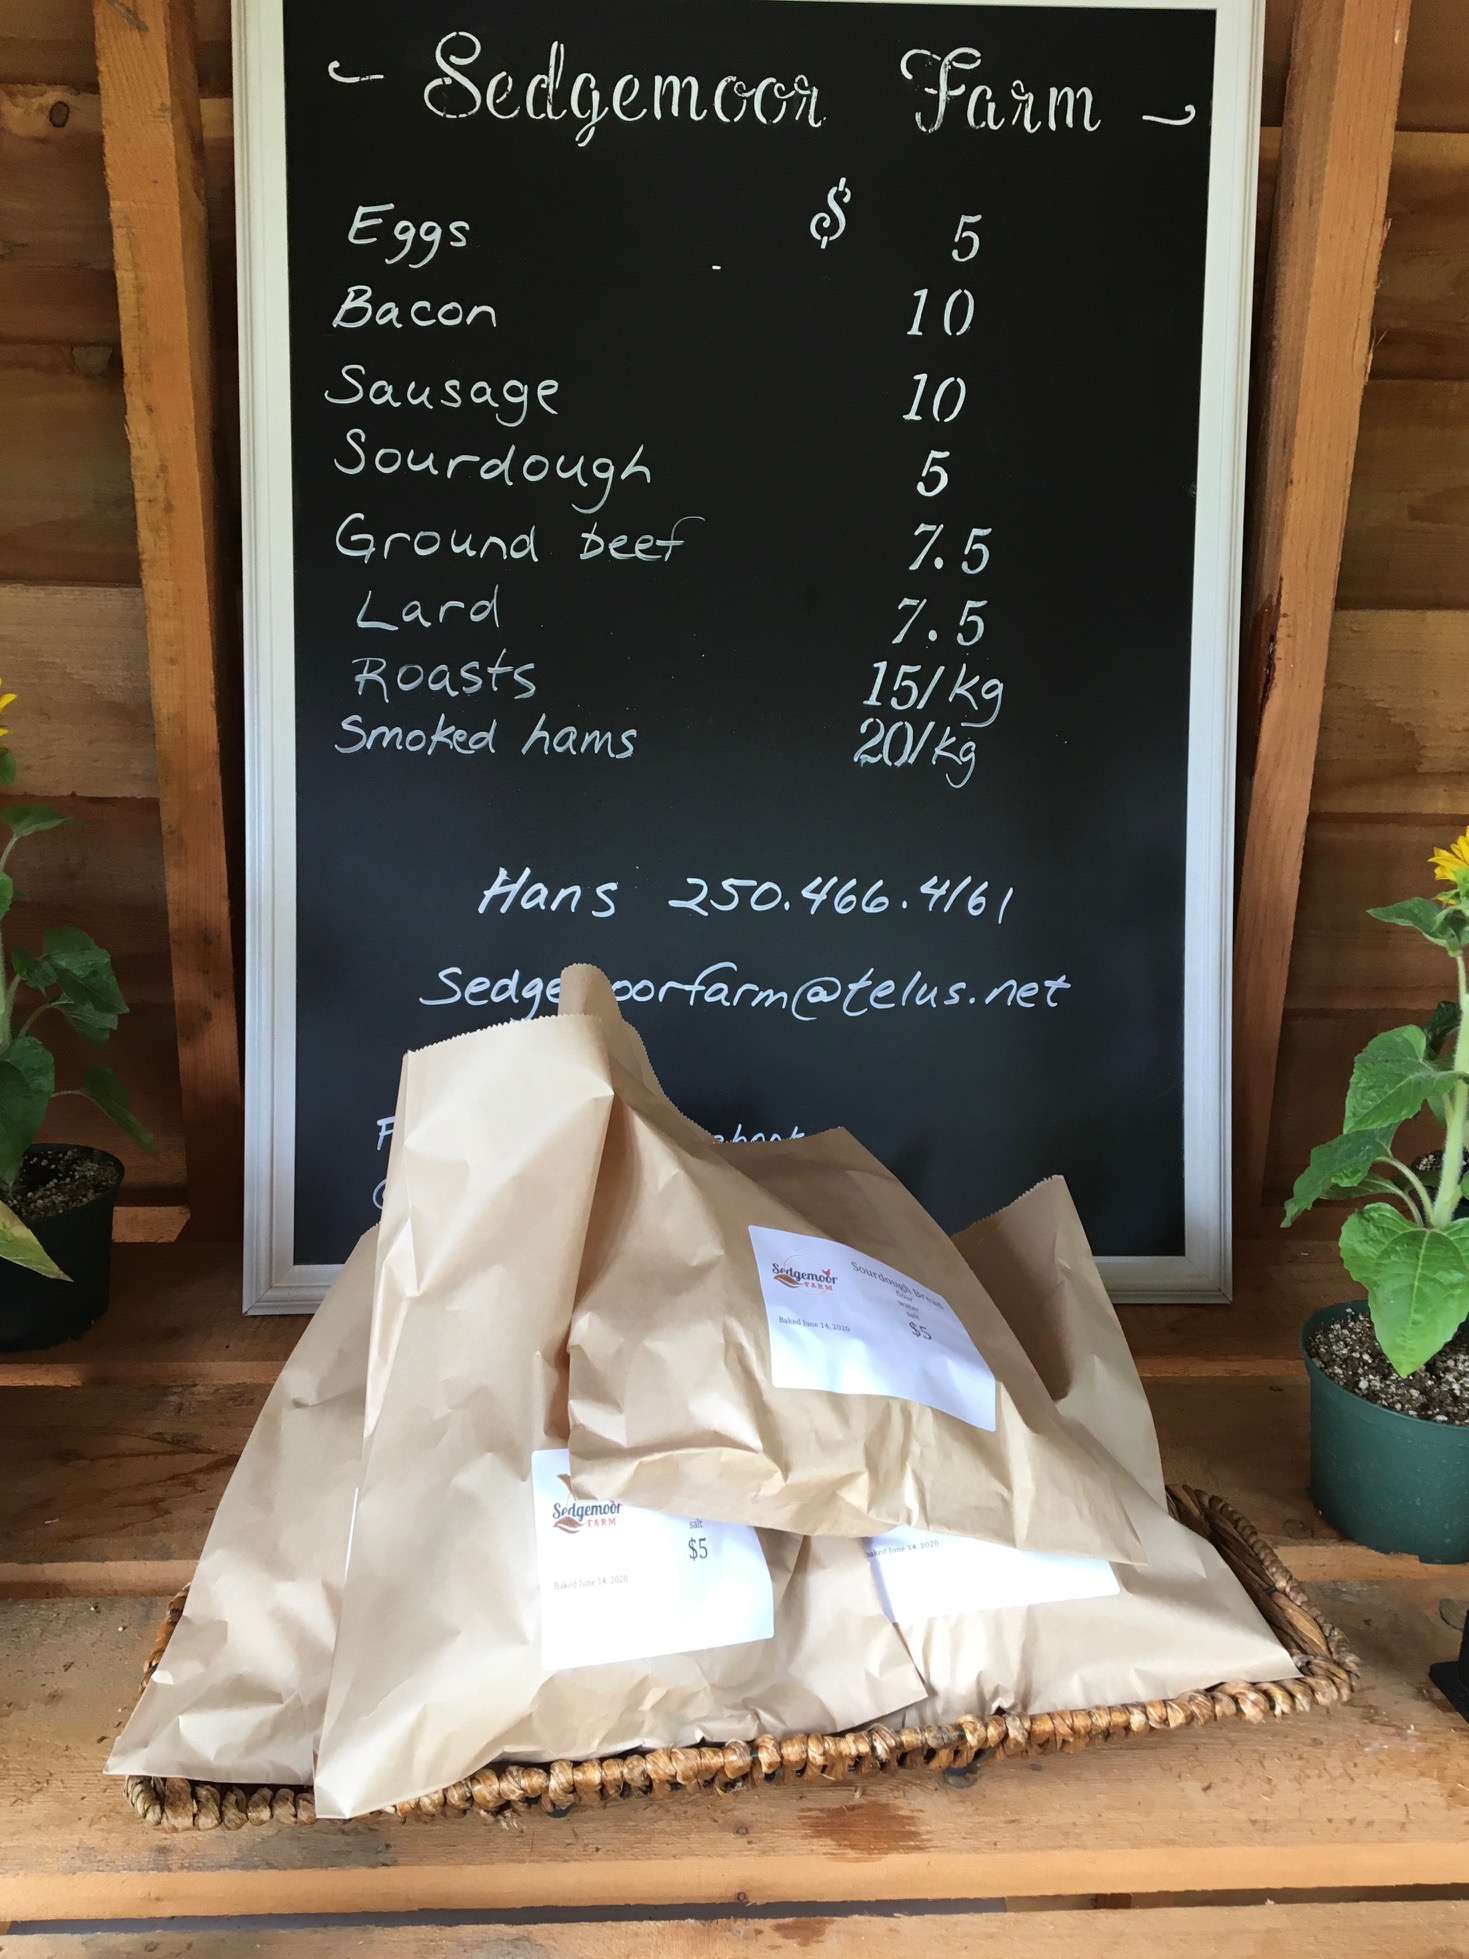 Sedgemoor Farm
$
Eggs 5
Bacon 10
Sausage 10
Sourdough 5
Ground beef 7.5
Lard 7.5
Roasts 15/kg
Smoked hams 20/kg
Hans 250.466.4161
Sedge oorfarm@telus.net
Sedgemoor
FARM
Sourdough Bread
flour
water
salt
$5
Baked June 14, 2020
Sedgemoor
FARM
salt
$5
Baked June 14, 2020
Baked June 14, 2020